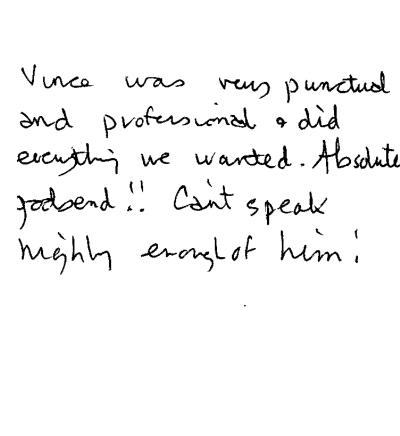 Vince was very punctual
and professional & did
everything we wanted. Absolute
godsend!! Can't speak
highly enough of him!